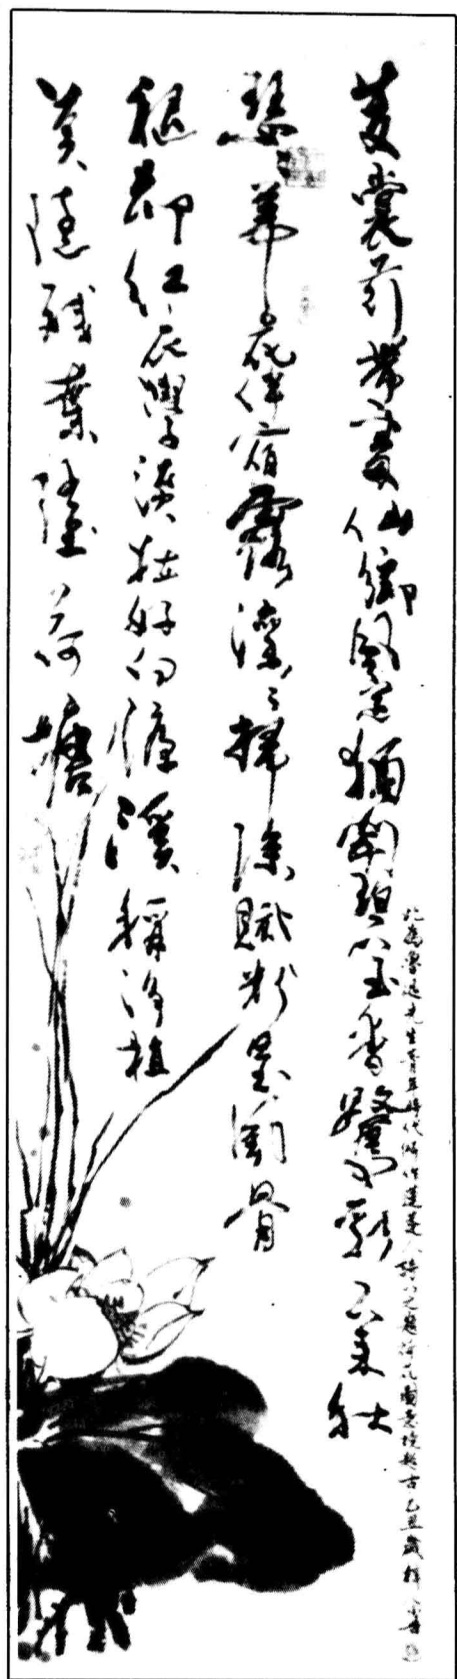 芰裳荇帶處仙鄉風定猶聞碧玉香鷺影不来秋
瑟々葦花伴宿露瀼々掃除膩粉呈風骨
褪却紅衣學淡粧好向濂溪稱淨植
莫隨殘葉墮荷塘
此為魯迅先生青年時代所作蓮蓬人詩以之題荷花圖意境 古乙丑歲